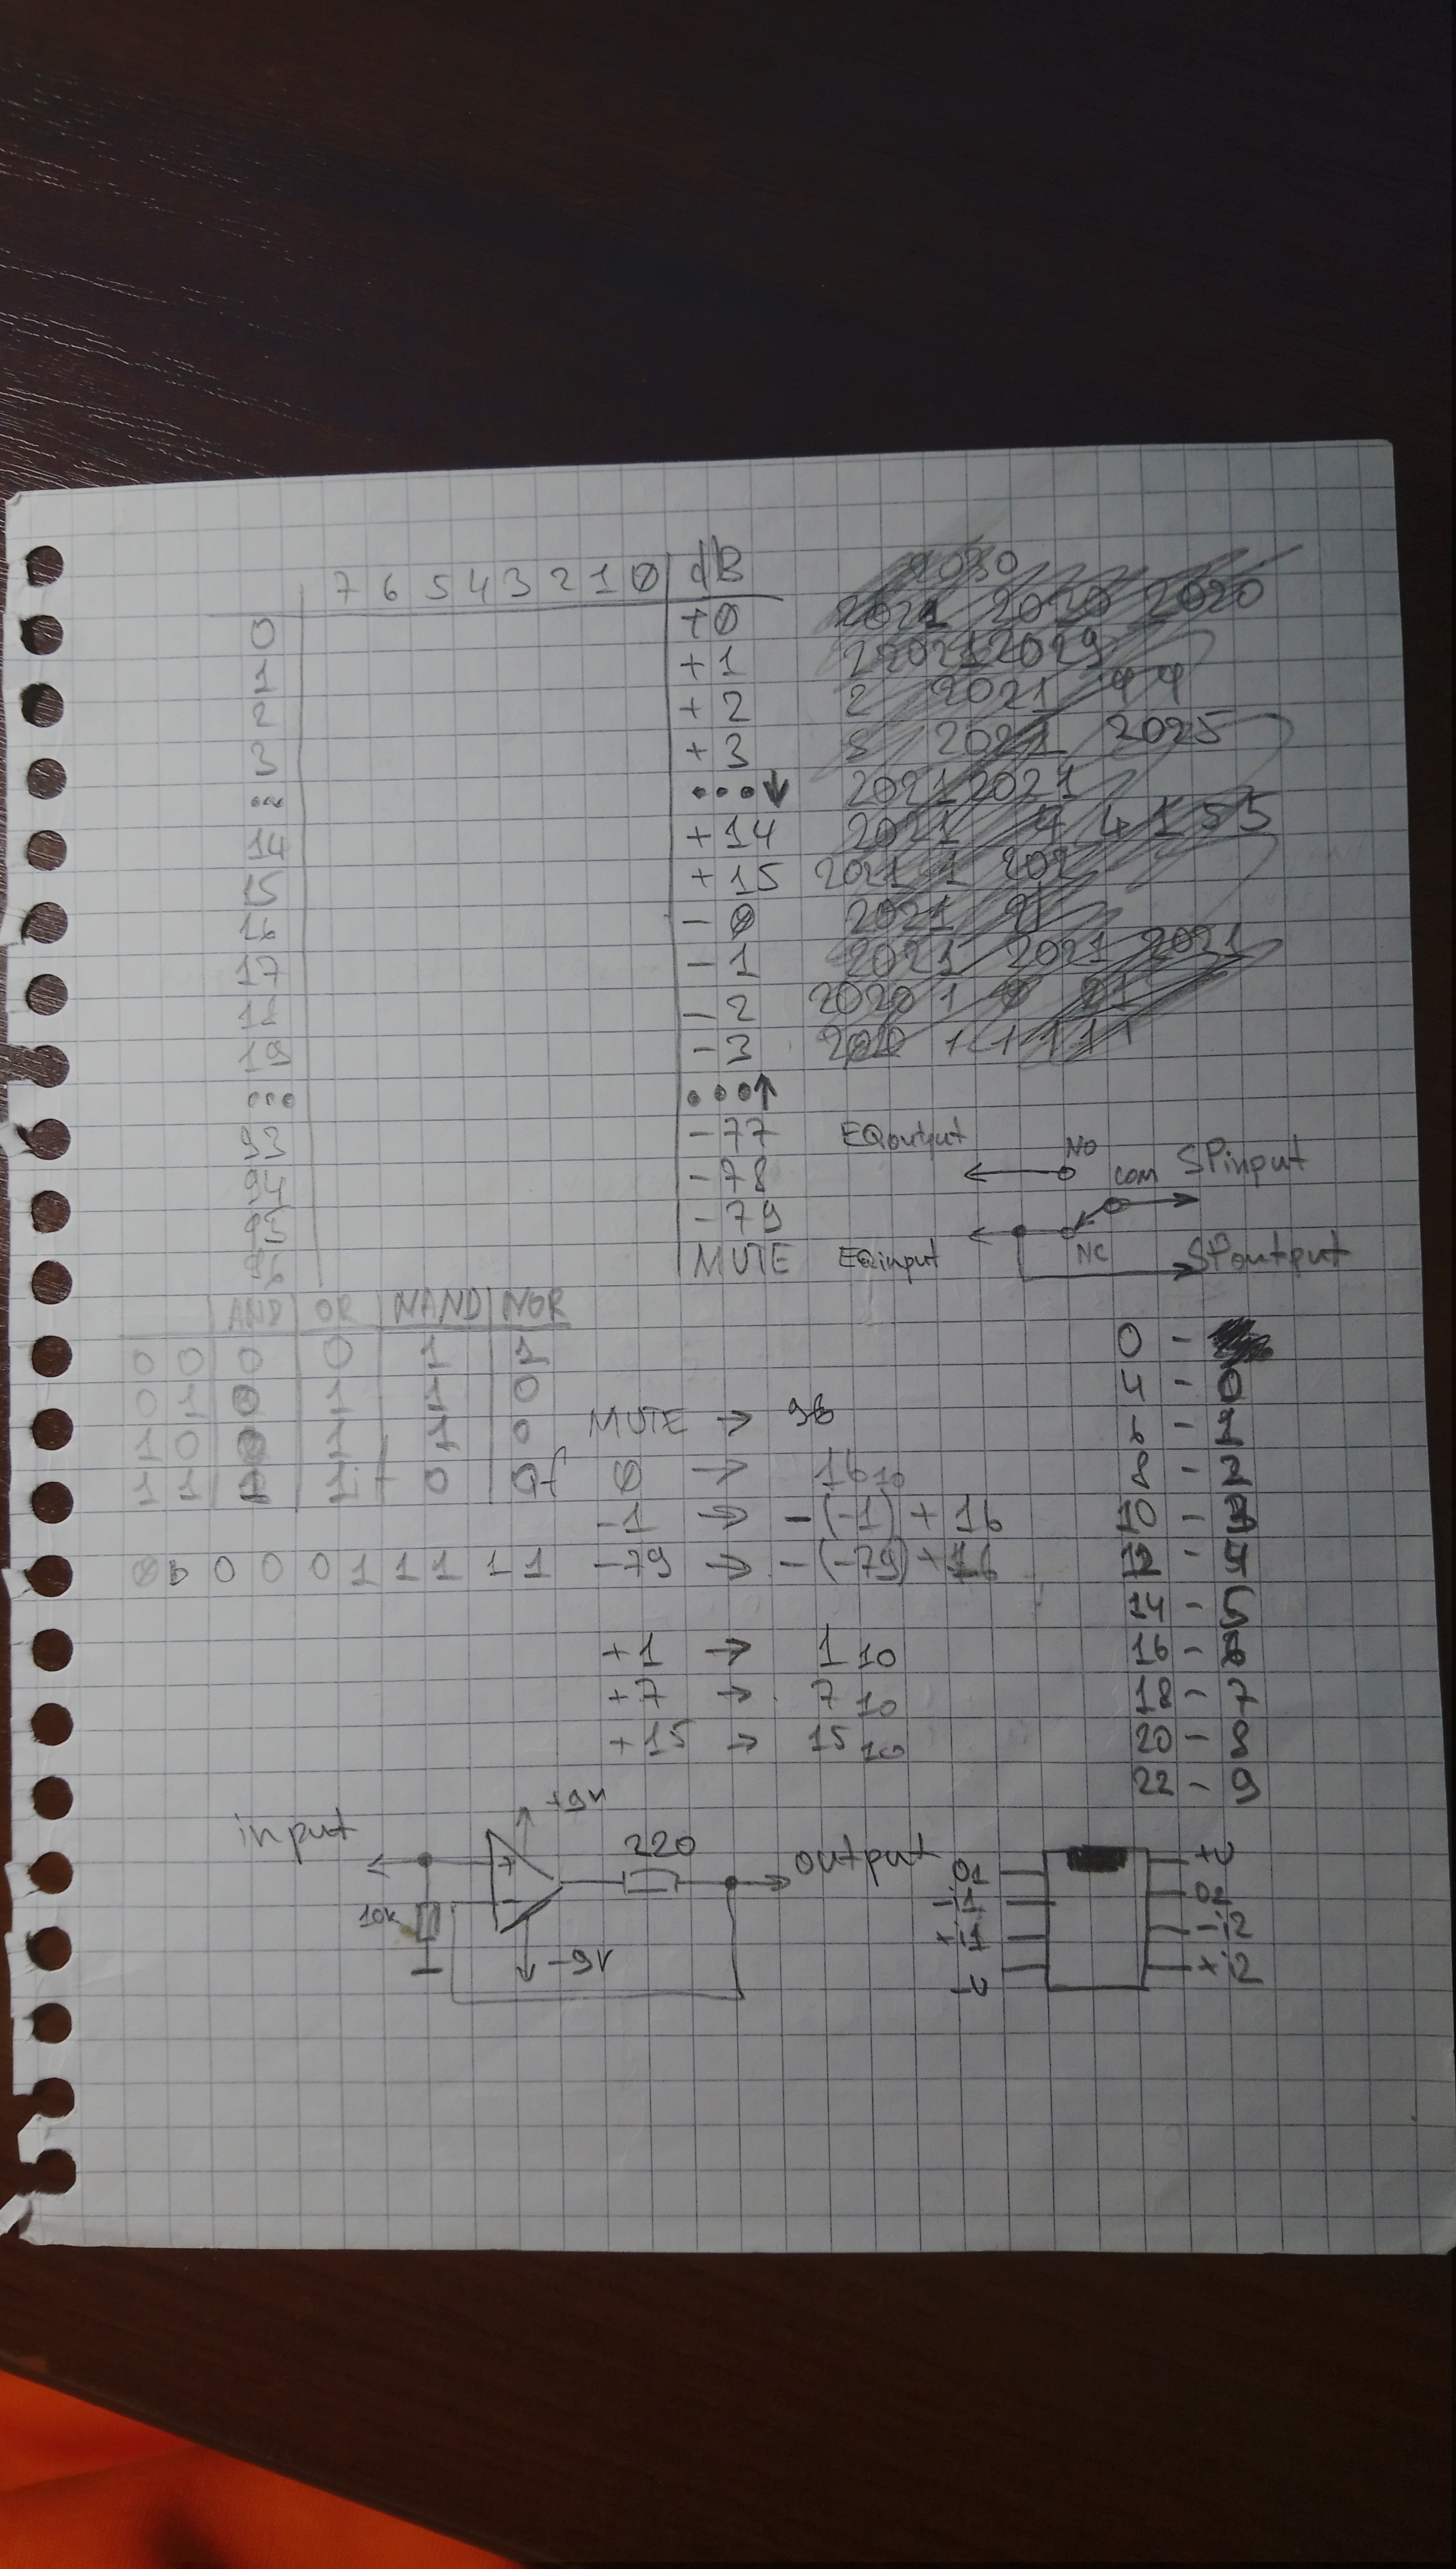 7 6 5 4 3 2 1 0 dB
0 +0
1 +1
2 +2
3 +3
... ...↓
14 +14
15 +15
16 -0
17 -1
18 -2
19 -3
... ...↑
93 -77
94 -78
95 -79
96 MUTE
2030
2021 2020 2020
2 2021 2029
2 2021
2021 2025
2021 2021
2021 4 4 1 5 5
2021 1 202
2021 21
2021 2021 2021
2020 1 0 21
2020 1 1 1 1 1
EQoutput NO
COM SPinput
EQinput NC SPoutput
AND OR NAND NOR
0 0 0 0 1 1
0 1 0 1 1 0
1 0 0 1 1 0
1 1 1 1 0 0
0b 0 0 0 1 1 1 1 1
MUTE → 96
0 → 16 10
-1 → -(-1) + 16
-79 → -(-79) + 16
+1 → 1 10
+7 → 7 10
+15 → 15 10
0 -
4 - 0
6 - 1
8 - 2
10 -
12 -
14 - 5
16 - 6
18 - 7
20 - 8
22 - 9
input + +9V 220 output
10k - -9V
01 +U
-i1 01
+i1 -i2
-U +i2